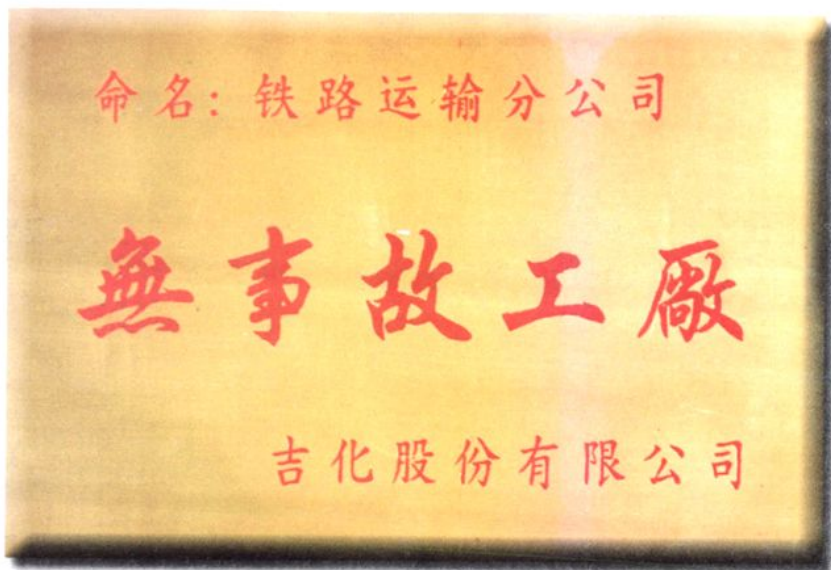 命名：铁路运输分公司
無事故工廠
吉化股份有限公司